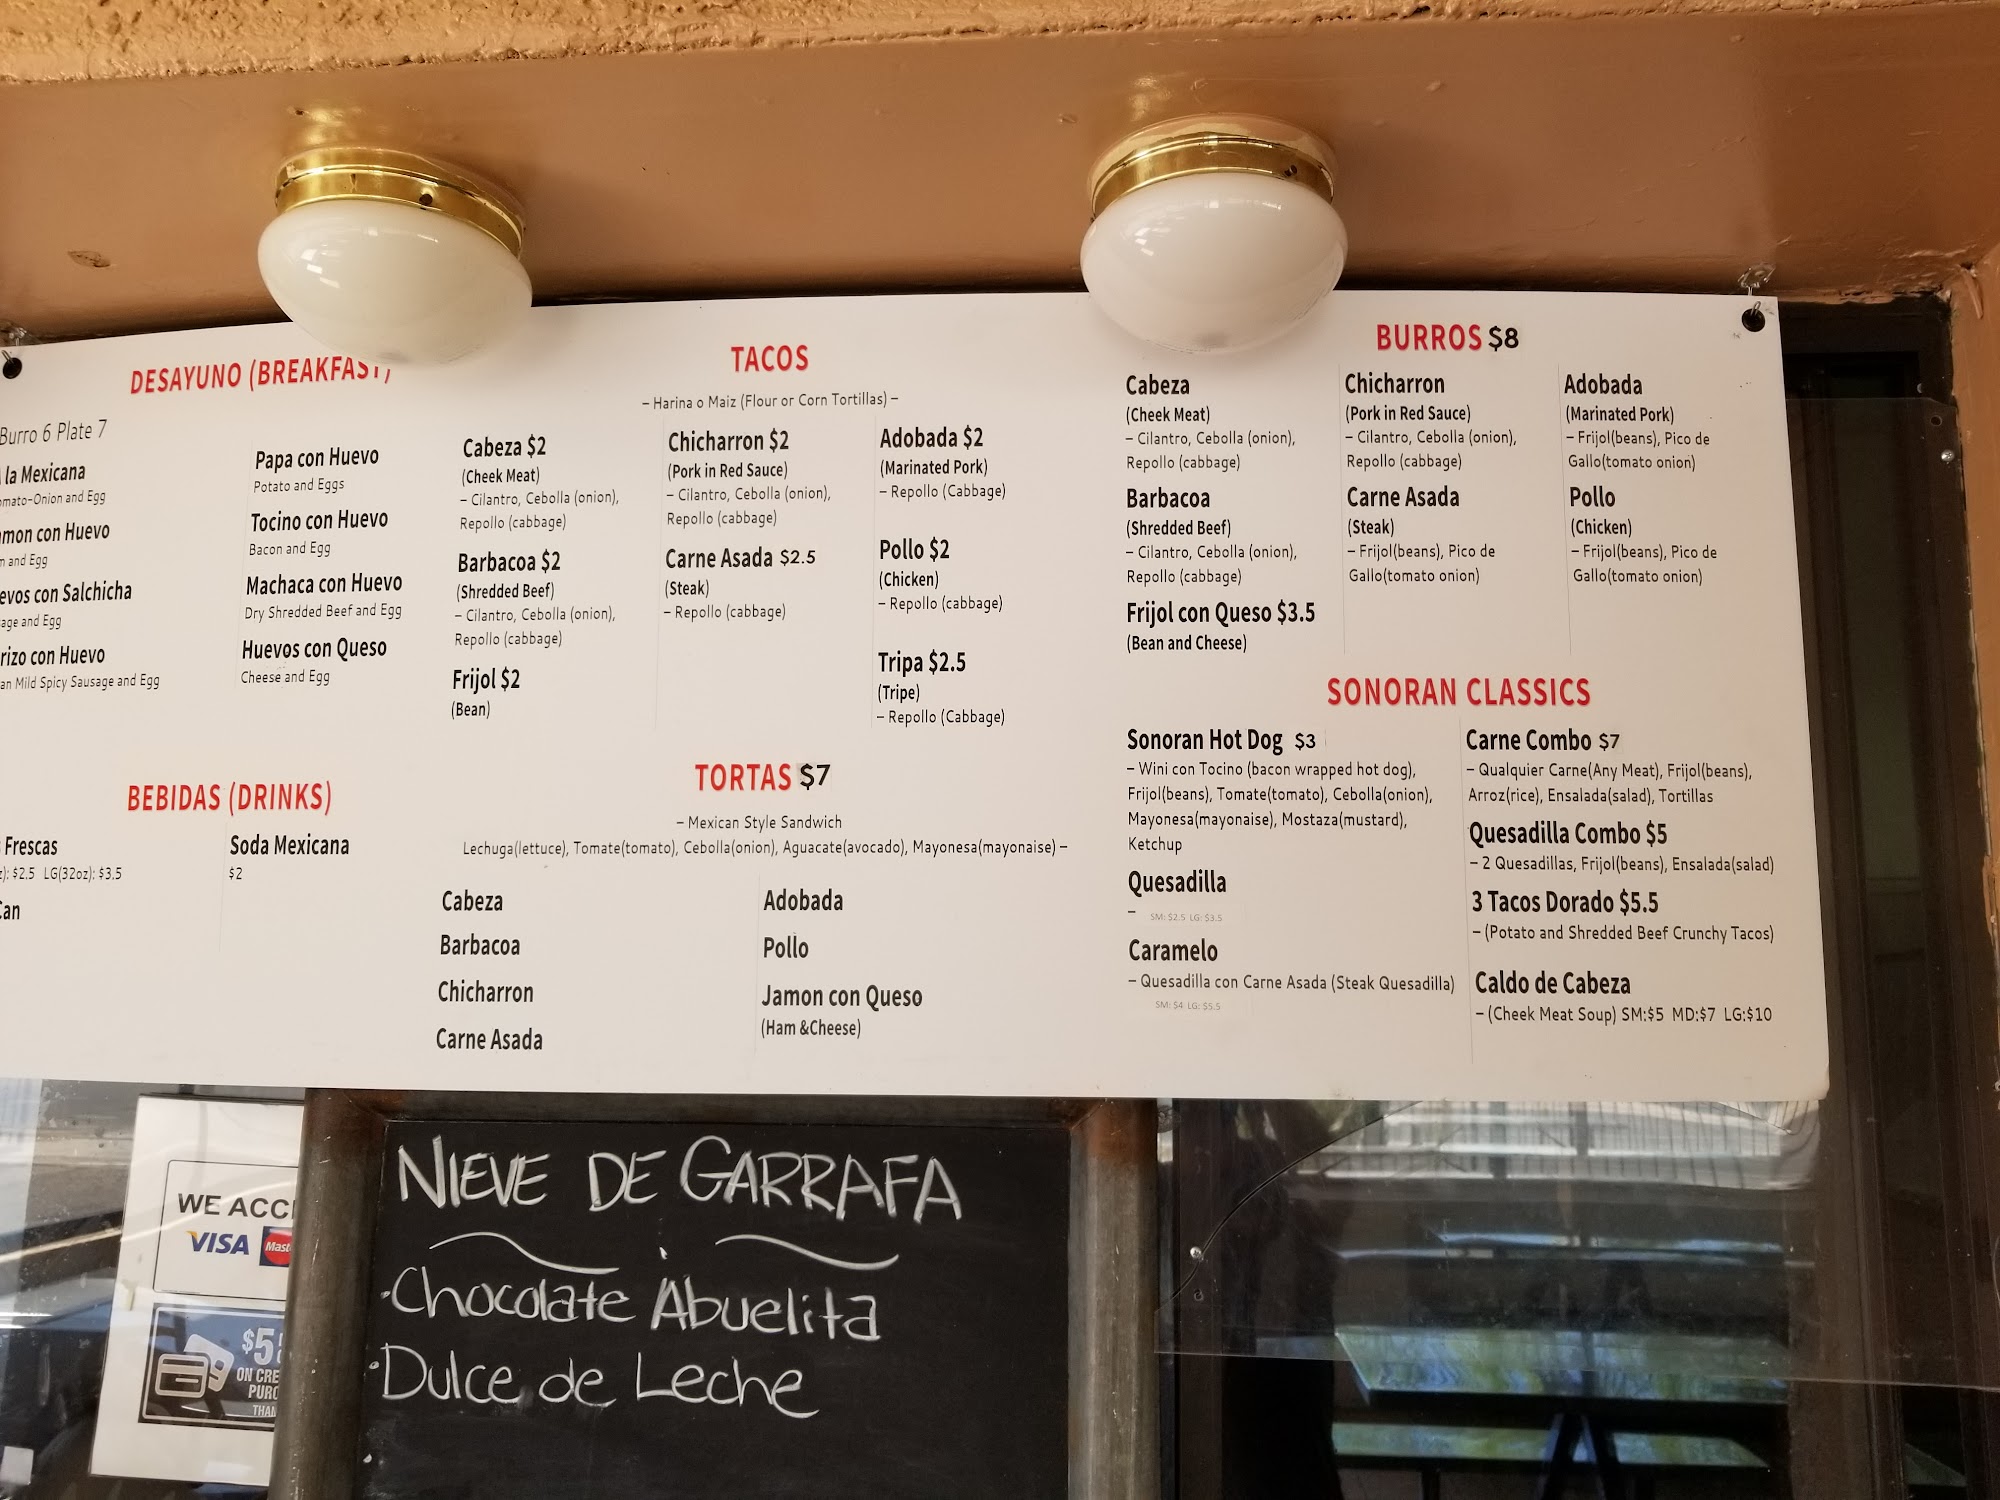 DESAYUNO (BREAKFAST)
Burro 6 Plate 7
la Mexicana
and Egg
con Huevo
and Egg
con Salchicha
and Egg
con Huevo
Mild Spicy Sausage and Egg
Papa con Huevo
Potato and Eggs
Tocino con Huevo
Bacon and Egg
Machaca con Huevo
Dry Shredded Beef and Egg
Huevos con Queso
Cheese and Egg
BEBIDAS (DRINKS)
Frescas
: $2.5 LG(32oz): $3.5
Soda Mexicana
$2
TACOS
– Harina o Maiz (Flour or Corn Tortillas) –
Cabeza $2
(Cheek Meat)
– Cilantro, Cebolla (onion),
Repollo (cabbage)
Barbacoa $2
(Shredded Beef)
– Cilantro, Cebolla (onion),
Repollo (cabbage)
Frijol $2
(Bean)
Chicharron $2
(Pork in Red Sauce)
– Cilantro, Cebolla (onion),
Repollo (cabbage)
Carne Asada $2.5
(Steak)
– Repollo (cabbage)
Adobada $2
(Marinated Pork)
– Repollo (Cabbage)
Pollo $2
(Chicken)
– Repollo (cabbage)
Tripa $2.5
(Tripe)
– Repollo (Cabbage)
TORTAS $7
– Mexican Style Sandwich
Lechuga(lettuce), Tomate(tomato), Cebolla(onion), Aguacate(avocado), Mayonesa(mayonaise) –
Cabeza
Barbacoa
Chicharron
Carne Asada
Adobada
Pollo
Jamon con Queso
(Ham &Cheese)
BURROS $8
Cabeza
(Cheek Meat)
– Cilantro, Cebolla (onion),
Repollo (cabbage)
Barbacoa
(Shredded Beef)
– Cilantro, Cebolla (onion),
Repollo (cabbage)
Frijol con Queso $3.5
(Bean and Cheese)
Chicharron
(Pork in Red Sauce)
– Cilantro, Cebolla (onion),
Repollo (cabbage)
Carne Asada
(Steak)
– Frijol(beans), Pico de
Gallo(tomato onion)
Adobada
(Marinated Pork)
– Frijol(beans), Pico de
Gallo(tomato onion)
Pollo
(Chicken)
– Frijol(beans), Pico de
Gallo(tomato onion)
SONORAN CLASSICS
Sonoran Hot Dog $3
– Wini con Tocino (bacon wrapped hot dog),
Frijol(beans), Tomate(tomato), Cebolla(onion),
Mayonesa(mayonaise), Mostaza(mustard),
Ketchup
Quesadilla
– SM: $2.5 LG: $3.5
Caramelo
– Quesadilla con Carne Asada (Steak Quesadilla)
SM: $4 LG: $5.5
Carne Combo $7
– Qualquier Carne(Any Meat), Frijol(beans),
Arroz(rice), Ensalada(salad), Tortillas
Quesadilla Combo $5
– 2 Quesadillas, Frijol(beans), Ensalada(salad)
3 Tacos Dorado $5.5
– (Potato and Shredded Beef Crunchy Tacos)
Caldo de Cabeza
– (Cheek Meat Soup) SM:$5 MD:$7 LG:$10
NIEVE DE GARRAFA
·Chocolate Abuelita
·Dulce de Leche
WE
VISA
ON